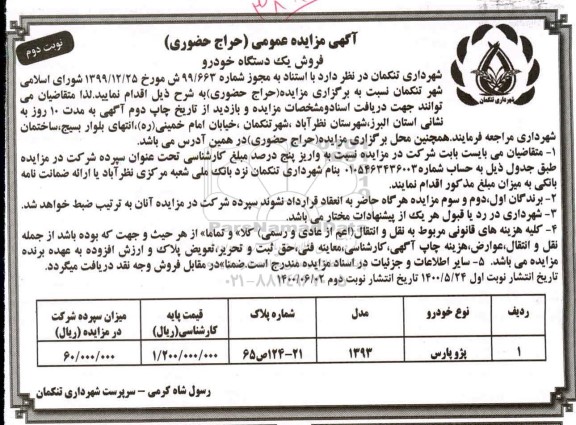 نوبت دوم
آگهی مزایده عمومی (حراج حضوری)
فروش یک دستگاه خودرو
شهرداری تنکمان
شهرداری تنکمان در نظر دارد با استناد به مجوز شماره ۹۹/۶۶۳ ش مورخ ۱۳۹۹/۱۲/۲۵ شورای اسلامی
شهر تنکمان نسبت به برگزاری مزایده(حراج حضوری)به شرح ذیل اقدام نمایید.لذا متقاضیان می
توانند جهت دریافت اسنادومشخصات مزایده و بازدید از تاریخ چاپ دوم آگهی به مدت ۱۰ روز به
نشانی استان البرز،شهرستان نظرآباد ،شهرتنکمان ،خیابان امام خمینی(ره)،انتهای بلوار بسیج،ساختمان
شهرداری مراجعه فرمایند.همچنین محل برگزاری مزایده(حراج حضوری)در همین آدرس می باشد.
۱- متقاضیان می بایست بابت شرکت در مزایده نسبت به واریز پنج درصد مبلغ کارشناسی تحت عنوان سپرده شرکت در مزایده
طبق جدول ذیل به حساب شماره ۰۱۰۵۴۶۳۴۳۶۰۰۳ بنام شهرداری تنکمان نزد بانک ملی شعبه مرکزی نظرآباد یا ارائه ضمانت نامه
بانکی به میزان مبلغ مذکور اقدام نمایند.
۲- برندگان اول،دوم و سوم مزایده هرگاه حاضر به انعقاد قرارداد نشوند سپرده شرکت در مزایده آنان به ترتیب ضبط خواهد شد.
۳- شهرداری در رد یا قبول هر یک از پیشنهادات مختار می باشد.
۴- کلیه هزینه های قانونی مربوط به نقل و انتقال(اعم از عادی و رسمی) کلا" و تماما" از هر حیث و جهت که بوده باشد از جمله
نقل و انتقال،عوارض،هزینه چاپ آگهی،کارشناسی،معاینه فنی،حق ثبت و تحریر،تعویض پلاک و ارزش افزوده به عهده برنده
مزایده می باشد. ۵- سایر اطلاعات و جزئیات در اسناد مزایده مندرج است.ضمنا"در مقابل فروش وجه نقد دریافت میگردد.
تاریخ انتشار نوبت اول ۱۴۰۰/۵/۲۴ تاریخ انتشار نوبت دوم ۱۴۰۰/۰۶/۰۲
ردیف نوع خودرو مدل شماره پلاک قیمت پایه کارشناسی(ریال) میزان سپرده شرکت در مزایده (ریال)
۱ پژو پارس ۱۳۹۳ ۲۱-۱۲۴ص۶۵ ۱/۲۰۰/۰۰۰/۰۰۰ ۶۰/۰۰۰/۰۰۰
رسول شاه کرمی – سرپرست شهرداری تنکمان